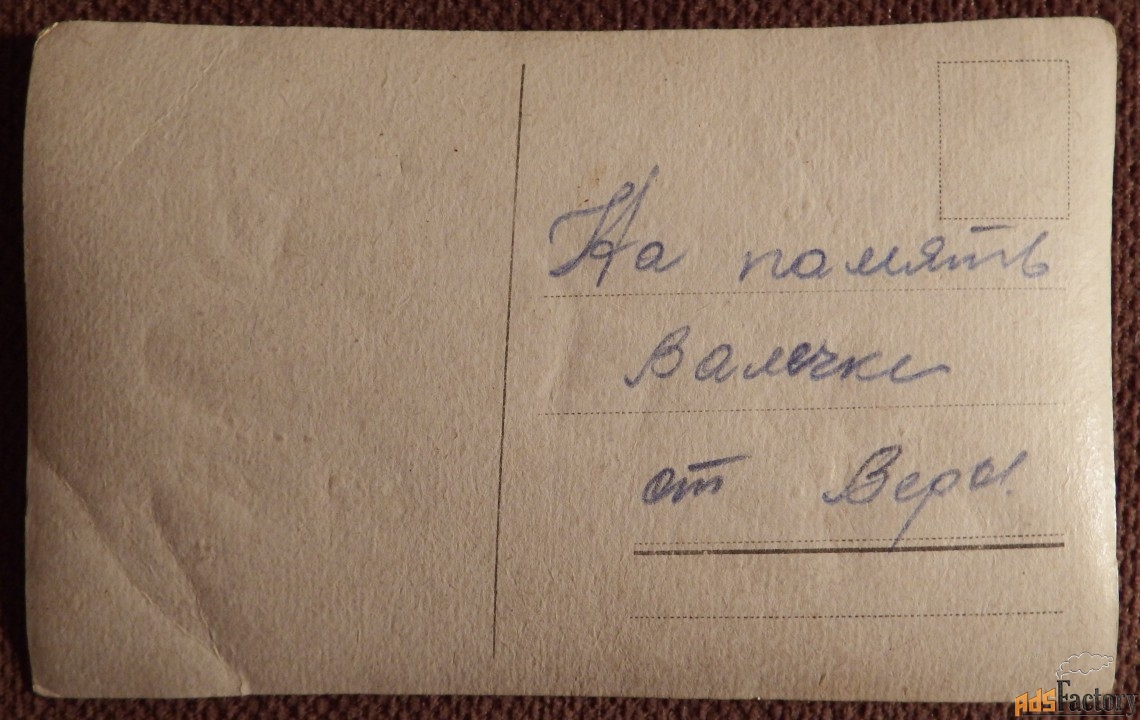 На память
Валечке
от Веры.
AdsFactory